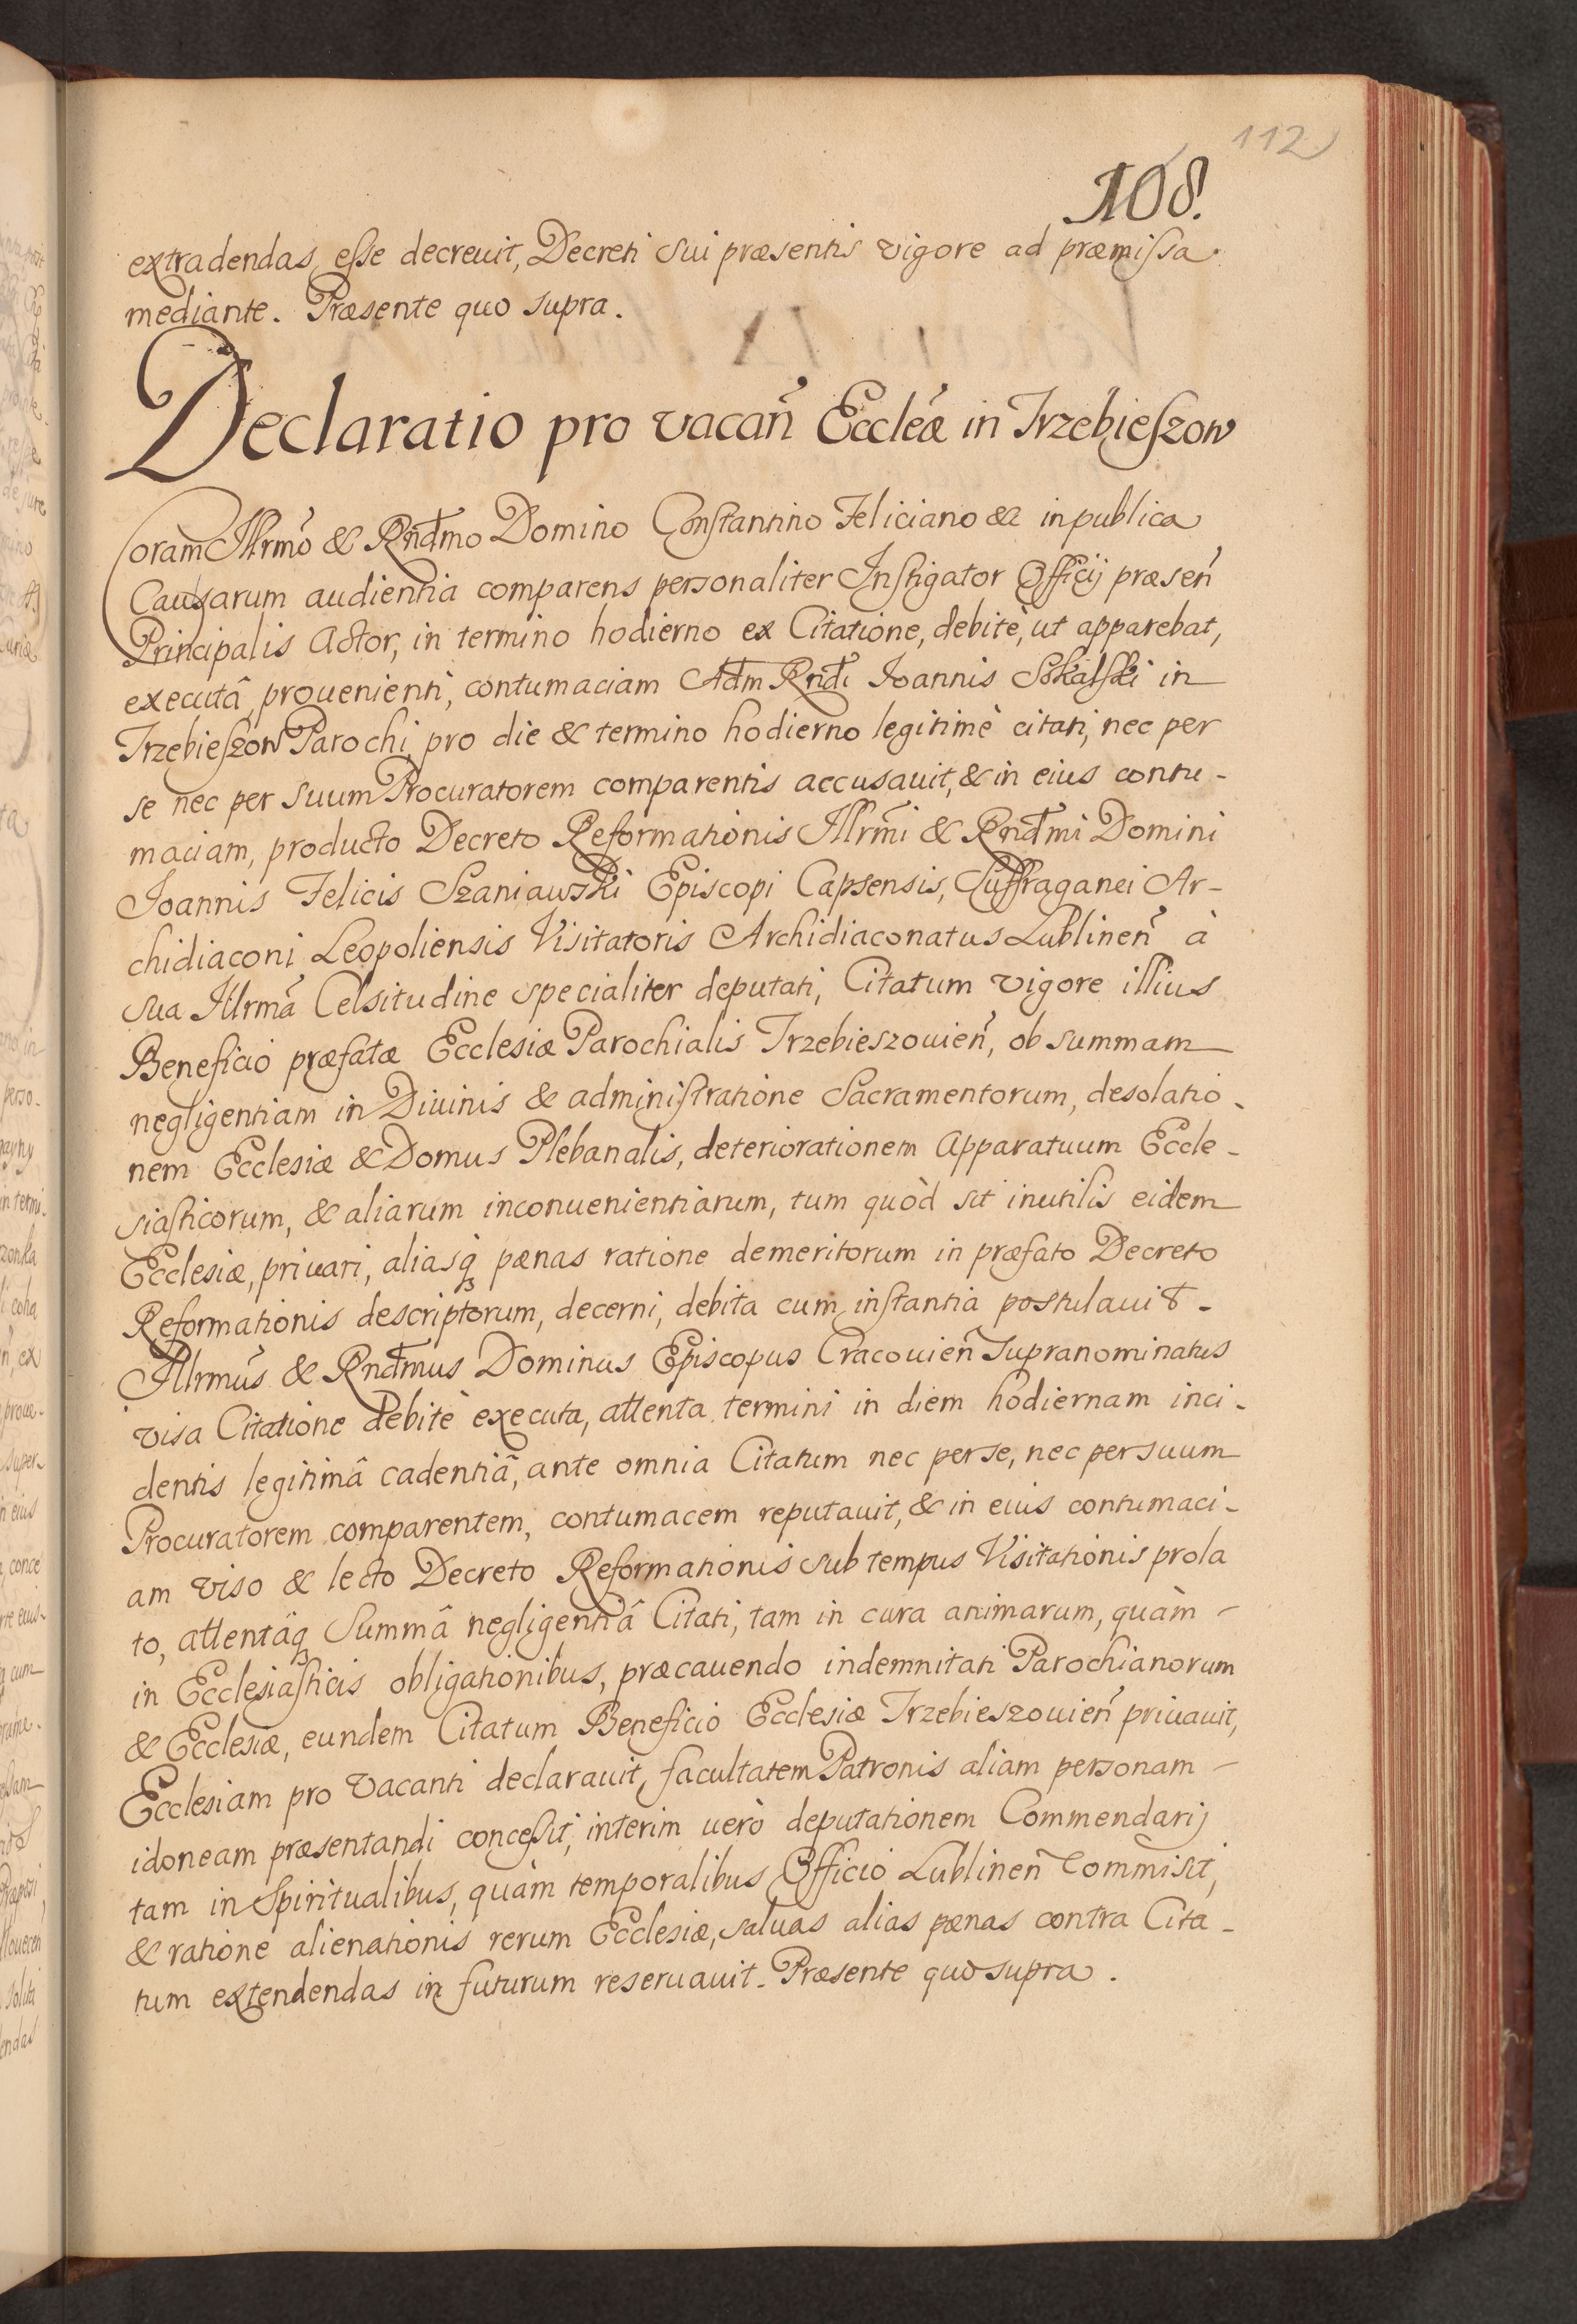 112
108.
extradendas esse decreuit, Decreti sui præsentis vigore ad præmissa
mediante. Præsente quo supra.
Declaratio pro vacan̄ Eccleæ in Trzebieszow
Coram Illrmo & Rndmo Domino Constantino Feliciano &c in publica
Causarum audientia comparens personaliter Instigator Officij præsen̄
Principalis Actor, in termino hodierno ex Citatione, debitè, ut apparebat,
executâ, prouenienti, contumaciam Adm Rndi Ioannis Sokalski in
Trzebieszow Parochi, pro die & termino hodierno legitimè citati, nec per
se nec per suum Procuratorem comparentis accusauit, & in eius contu-
maciam, producto Decreto Reformationis Illrmi & Rndmi Domini
Ioannis Felicis Szaniawski Episcopi Capsensis, Suffraganei Ar-
chidiaconi Leopoliensis Visitatoris Archidiaconatus Lublinen̄ à
sua Illrmâ Celsitudine specialiter deputati, Citatum vigore illius
Beneficio præfatæ Ecclesiæ Parochialis Trzebieszouien̄, ob summam
negligentiam in Diuinis & administratione Sacramentorum, desolatio-
nem Ecclesiæ & Domus Plebanalis, deteriorationem Apparatuum Eccle-
siasticorum, & aliarum inconuenientiarum, tum quòd sit inutilis eidem
Ecclesiæ, priuari, aliasq₃ pœnas ratione demeritorum in præfato Decreto
Reformationis descriptorum, decerni, debita cum instantia postulauit.
Illrmus & Rndmus Dominus Episcopus Cracouien̄ Supranominatus
visa Citatione debitè executa, attenta termini in diem hodiernam inci-
dentis legitimâ cadentiâ, ante omnia Citatum nec per se, nec per suum
Procuratorem comparentem, contumacem reputauit, & in eius contumaci-
am viso & lecto Decreto Reformationis sub tempus Visitationis prola
to, attentâq₃ Summâ negligentiâ Citati, tam in cura animarum, quàm
in Ecclesiasticis obligationibus, præcauendo indemnitati Parochianorum
& Ecclesiæ, eundem Citatum Beneficio Ecclesiæ Trzebieszouien̄ priuauit,
Ecclesiam pro vacanti declarauit, facultatem Patronis aliam personam
idoneam præsentandi concessit, interim uerò deputationem Commendarij
tam in Spiritualibus, quàm temporalibus Officio Lublinen̄ Commisit,
& ratione alienationis rerum Ecclesiæ, saluas alias pœnas contra Cita-
tum extendendas in futurum reseruauit. Præsente quo supra.